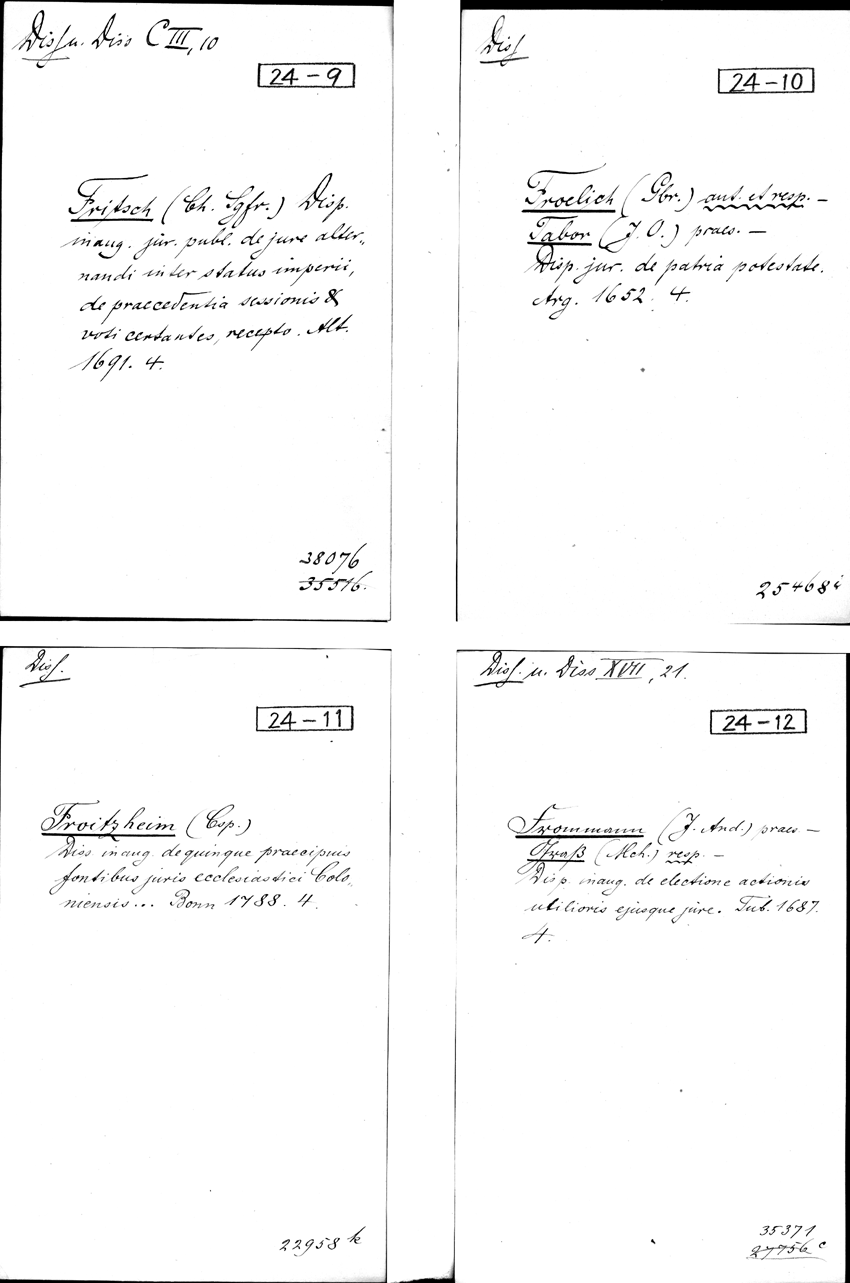 Diss u. Diss C III, 10
24-9
Fritsch (Ch. Sgfr.) Disp.
inaug. jur. publ. de jure alter-
nandi inter status imperii,
de praecedentia sessionis &
voti certantes, recepto. Alt.
1691. 4.
38076
35516.
Diss
24-10
Froelich (Gbr.) aut. et resp. —
Tabor (J. O.) praes. —
Disp. jur. de patria potestate.
Arg. 1652. 4.
25468 i
Diss.
24-11
Froitzheim (Csp.)
Diss inaug. de quinque praecipuis
fontibus juris ecclesiastici Colo-
niensis... Bonn 1788. 4.
22958 k
Diss. u. Diss XVII, 21.
24-12
Frommann (J. And.) praes. —
Graß (Mch.) resp. —
Disp. inaug. de electione actionis
utilioris ejusque jure. Tub. 1687.
4.
35371
27756 c